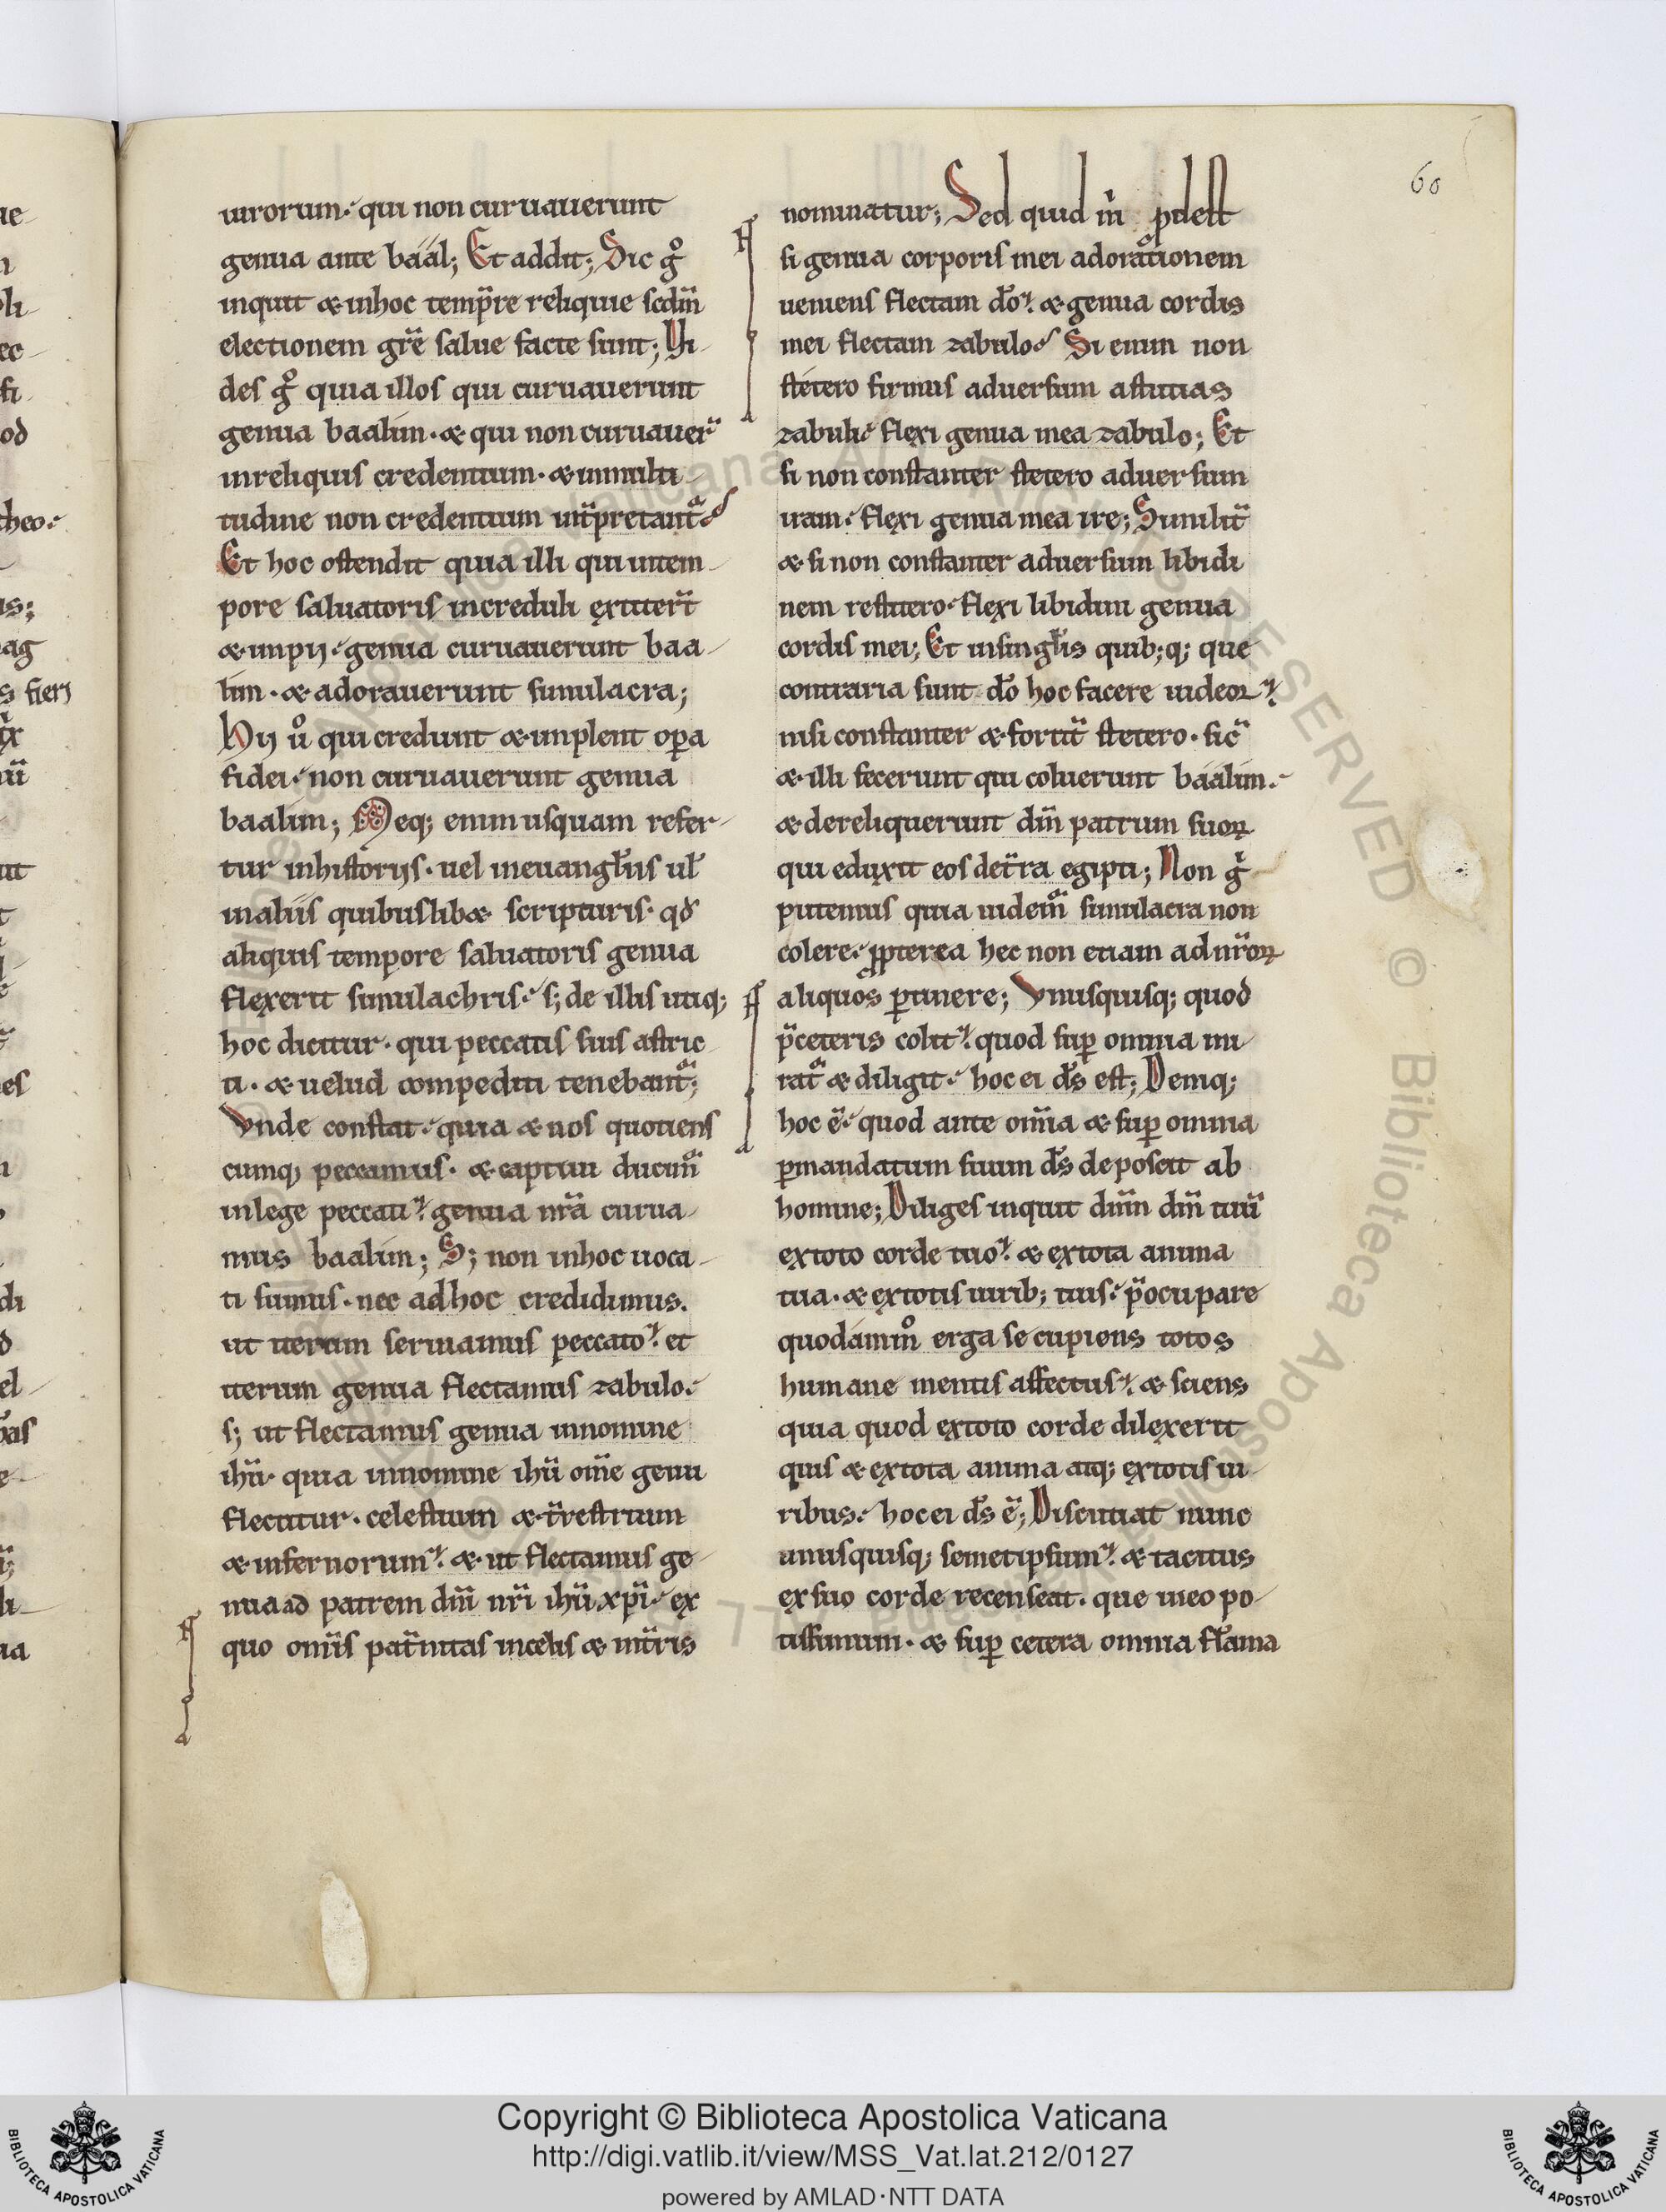 60
uirorum. qui non curuauerunt
genua ante baal; Et addit; Sic g̊
inquit & inhoc temp̄re reliquie scdm̄
electionem gr̄e salue facte sunt; Vi-
des g̊ quia illos qui curuauerunt
genua baalim. & qui non curuauer̄
inreliquis credentium. & inmulti-
tudine non credentium int̄pretant᷒.
Et hoc ostendit quia illi qui intem-
pore saluatoris increduli extiter̄t
& impij. genua curuauerunt baa-
lim. & adorauerunt simulacra;
Hij ů qui credunt & implent op̄a
fidei. non curuauerunt genua
baalim; Neq; enim usquam refer-
tur inhistorijs. uel ineuangl̄iis ul̄
inaliis quibuslib& scripturis. qd̄
aliquis tempore saluatoris genua
flexerit simulachris. s; de illis utiq;
hoc dicitur. qui peccatis suis astric-
ti. & uelud compediti tenebant᷒;
Vnde constat. quia & nos quotiens
cumq; peccamus. & captiui ducim᷒
inlege peccati. genua nr̄a curua-
mus baalim; S; non inhoc uoca-
ti sumus. nec adhoc credidimus.
ut iterum seruiamus peccato. et
iterum genua flectamus zabulo.
s; ut flectamus genua innomine
ihū. quia innomine ihū om̄e genu
flectitur. celestium & t̄restrium
& infernorum. & ut flectamus ge-
nua ad patrem dn̄i nr̄i ihū xp̄i. ex
quo om̄is pat̄nitas incelis & int̄ris
nominatur; Sed quid m̄ p̄dest
si genua corporis mei adorationem
ueniens flectam dō. & genua cordis
mei flectam zabulo. Si enim non
stetero firmus aduersum astutias
zabuli. flexi genua mea zabulo; Et
si non constanter stetero aduersum
iram. flexi genua mea ire; Similit̄
& si non constanter aduersum libidi
nem restitero. flexi libidini genua
cordis mei; Et insingl̄is quib;q; que
contraria sunt dō hoc facere uideor.
nisi constanter & fortit̄ stetero. sic̄
& illi fecerunt qui coluerunt baalim.
& dereliquerunt dn̄m patrum suoꝝ
qui eduxit eos det̄ra egipti; Non g̊
putemus quia uidem᷒ simulacra non
colere. ꝓpterea hec non etiam ad nr̄oꝝ
aliquos ꝑtinere; Vnusquisq; quod
p̄ceteris colit. quod suꝑ omnia mi-
rat᷒ & diligit. hoc ei ds̄ est; Deniq;
hoc ē. quod ante om̄ia & suꝑ omnia
ꝑmandatum suum ds̄ deposcit ab
homine; Diliges inquit dn̄m dn̄m tuū
extoto corde tuo. & extota anima
tua. & extotis uirib; tuis. p̄ocupare
quodammo᷒ erga se cupiens totos
humane mentis affectus. & sciens
quia quod extoto corde dilexerit
quis & extota anima atq; extotis ui-
ribus. hoc ei ds̄ ē; Discutiat nunc
unusquisq; semetipsum. & tacitus
exsuo corde recenseat. que ineo po-
tissimum. & suꝑ cetera omnia fl̄ama
Copyright © Biblioteca Apostolica Vaticana
http://digi.vatlib.it/view/MSS_Vat.lat.212/0127
powered by AMLAD·NTT DATA
BIBLIOTECA APOSTOLICA VATICANA
BIBLIOTECA APOSTOLICA VATICANA